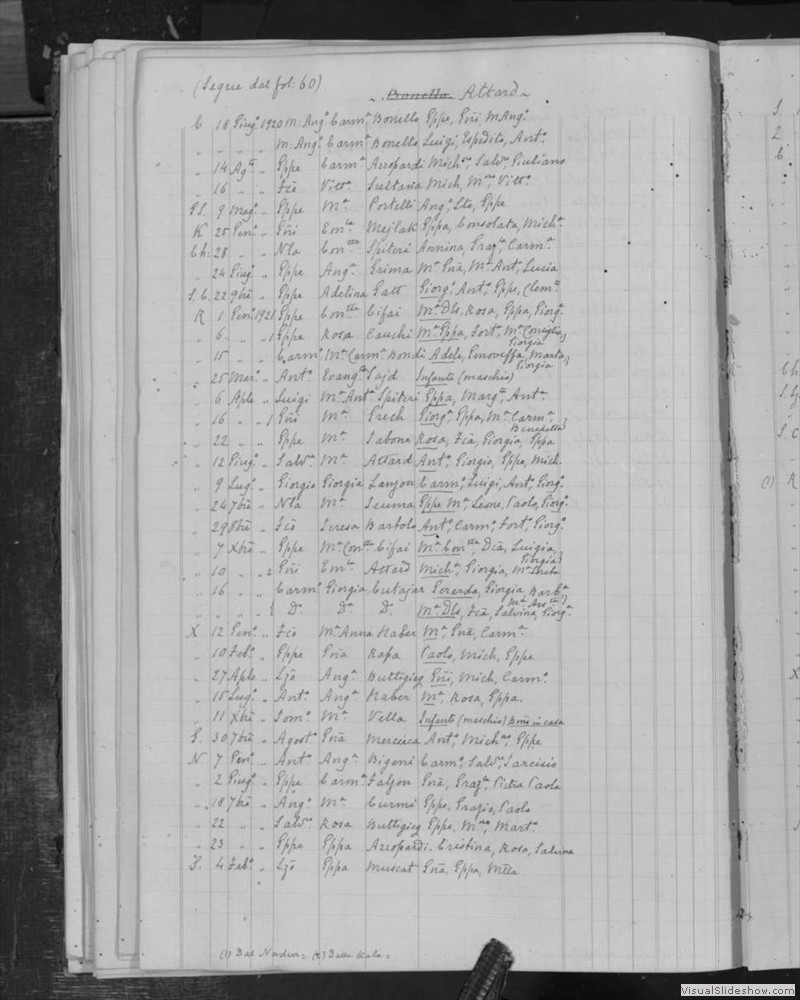 (Segue dal fol: 60)
Bonello Attard
C 18 Giug.º 1920 M. Ang.ª Carm.ª Bonello Gppe, Gnì, M Ang.ª
„ „ „ „ M. Ang.ª Carm.ª Bonello Luigi, Espedito, Ant.º
„ 14 Ag.to „ Gppe Carm.ª Azzopardi Mich.na, Salv.e, Giuliano
„ 16 „ „ Fcō Vitt.ª Sultana Mich, M.no, Vitt.ª
GS. 9 Mag.º „ Gppe M.ª Portelli Ang.º, Gppe
K 25 Gen.º „ Gnì Em.la Mejlak Gppa, Consolata, Mich.ª
Ch: 28 „ „ Nla Con.tta Spiteri Annina, Graz.la, Carm.ª
„ 24 Giug.º „ Gppe Ang.ª Grima M.ª Gnã, M.ª Ant.ª, Lucia
S.C. 22 9bre „ Gppe Adelina Gatt Giorg.º, Ant.º, Gppe, Clem.te
R 1 Gen.º 1921 Gppe Con.tta Cifai M.ª Dls, Rosa, Gppa, Giorg.ª
„ 6 „ „ Gppe Rosa Cauchi M.ª Gppa, Fort.ª, M.ª Coniglia, Giorgia
„ 15 „ „ Carm.º M.ª Carm.ª Bondì Adele, Genoveffa, Marta, Giorgia
„ 25 Mar.º „ Ant.º Evang.ta Sajd Infante (maschio)
„ 6 Aple „ Luigi M.ª Ant.ª Spiteri Gppa, Marg.ta, Ant.ª
„ 16 „ „ Gnì M.ª Grech Giorg.ª, Gppa, M.ª Carm.ª, Benedetta
„ 22 „ „ Gppe M.ª Sabona Rosa, Fcã, Giorgia, Gppa
„ 12 Giug.º „ Salv.e M.ª Attard Ant.º, Giorgio, Gppe, Mich.
„ 9 Lug.º „ Giorgio Giorgia Lanzon Carm.º, Luigi, Ant.º, Giorg.º
„ 24 7bre „ Nla M.ª Scuma Gppe M.ª, Leone, Paolo, Giorg.º
„ 29 8bre „ Fcō Teresa Bartolo Ant.º, Carm.º, Fort.º, Giorg.º
„ 7 Xbre „ Gppe M.ª Con.tta Cifai M.ª Con.tta, Dcã, Luigia, Giorgia
„ 10 „ „ Gnì Em.la Attard Mich.ª, Giorgia, M.ª
„ 16 „ „ Carm.º Giorgia Cutajar Gerarda, Giorgia, Barb.ª
„ „ „ D.º D.ª D.º M.ª Dls, Fcã, Salvina, Giorg.ª
X 12 Gen.º „ Fcō M.ª Anna Haber M.ª, Gnã, Carm.ª
„ 10 Feb.º „ Gppe Gnã Rapa Paolo, Mich, Gppe
„ 27 Aple „ Lzō Ang.ª Buttigieg Gnì, Mich, Carm.º
„ 15 Lug.º „ Ant.º Ang.ª Haber M.ª, Rosa, Gppa.
„ 11 Xbre „ Tom.º M.ª Vella Infante (maschio) in casa
G. 30 7bre „ Agost.º Gnã Mercieca Ant.º, Mich.le, Gppe
N 7 Gen.º „ Ant.º Ang.ª Bigeni Carm.º, Salv.e, Tarcisio
„ 2 Giug.º „ Gppe Carm.ª Falzon Gnã, Graz.la, Pietra Paola
„ 18 7bre „ Ang.º M.ª Curmi Gppe, Grazio, Paolo
„ 22 „ Salv.e Rosa Buttigieg Gppe, M.no, Mart.º
„ 23 „ „ Gppe Gppa Azzopardi Cristina, Rosa, Salvina
Z. 4 Feb.º „ Lzō Gppa Muscat Gnã, Gppa,
(1) Dal Nadur= (2) Dalla Xala=
VisualSlideshow.com